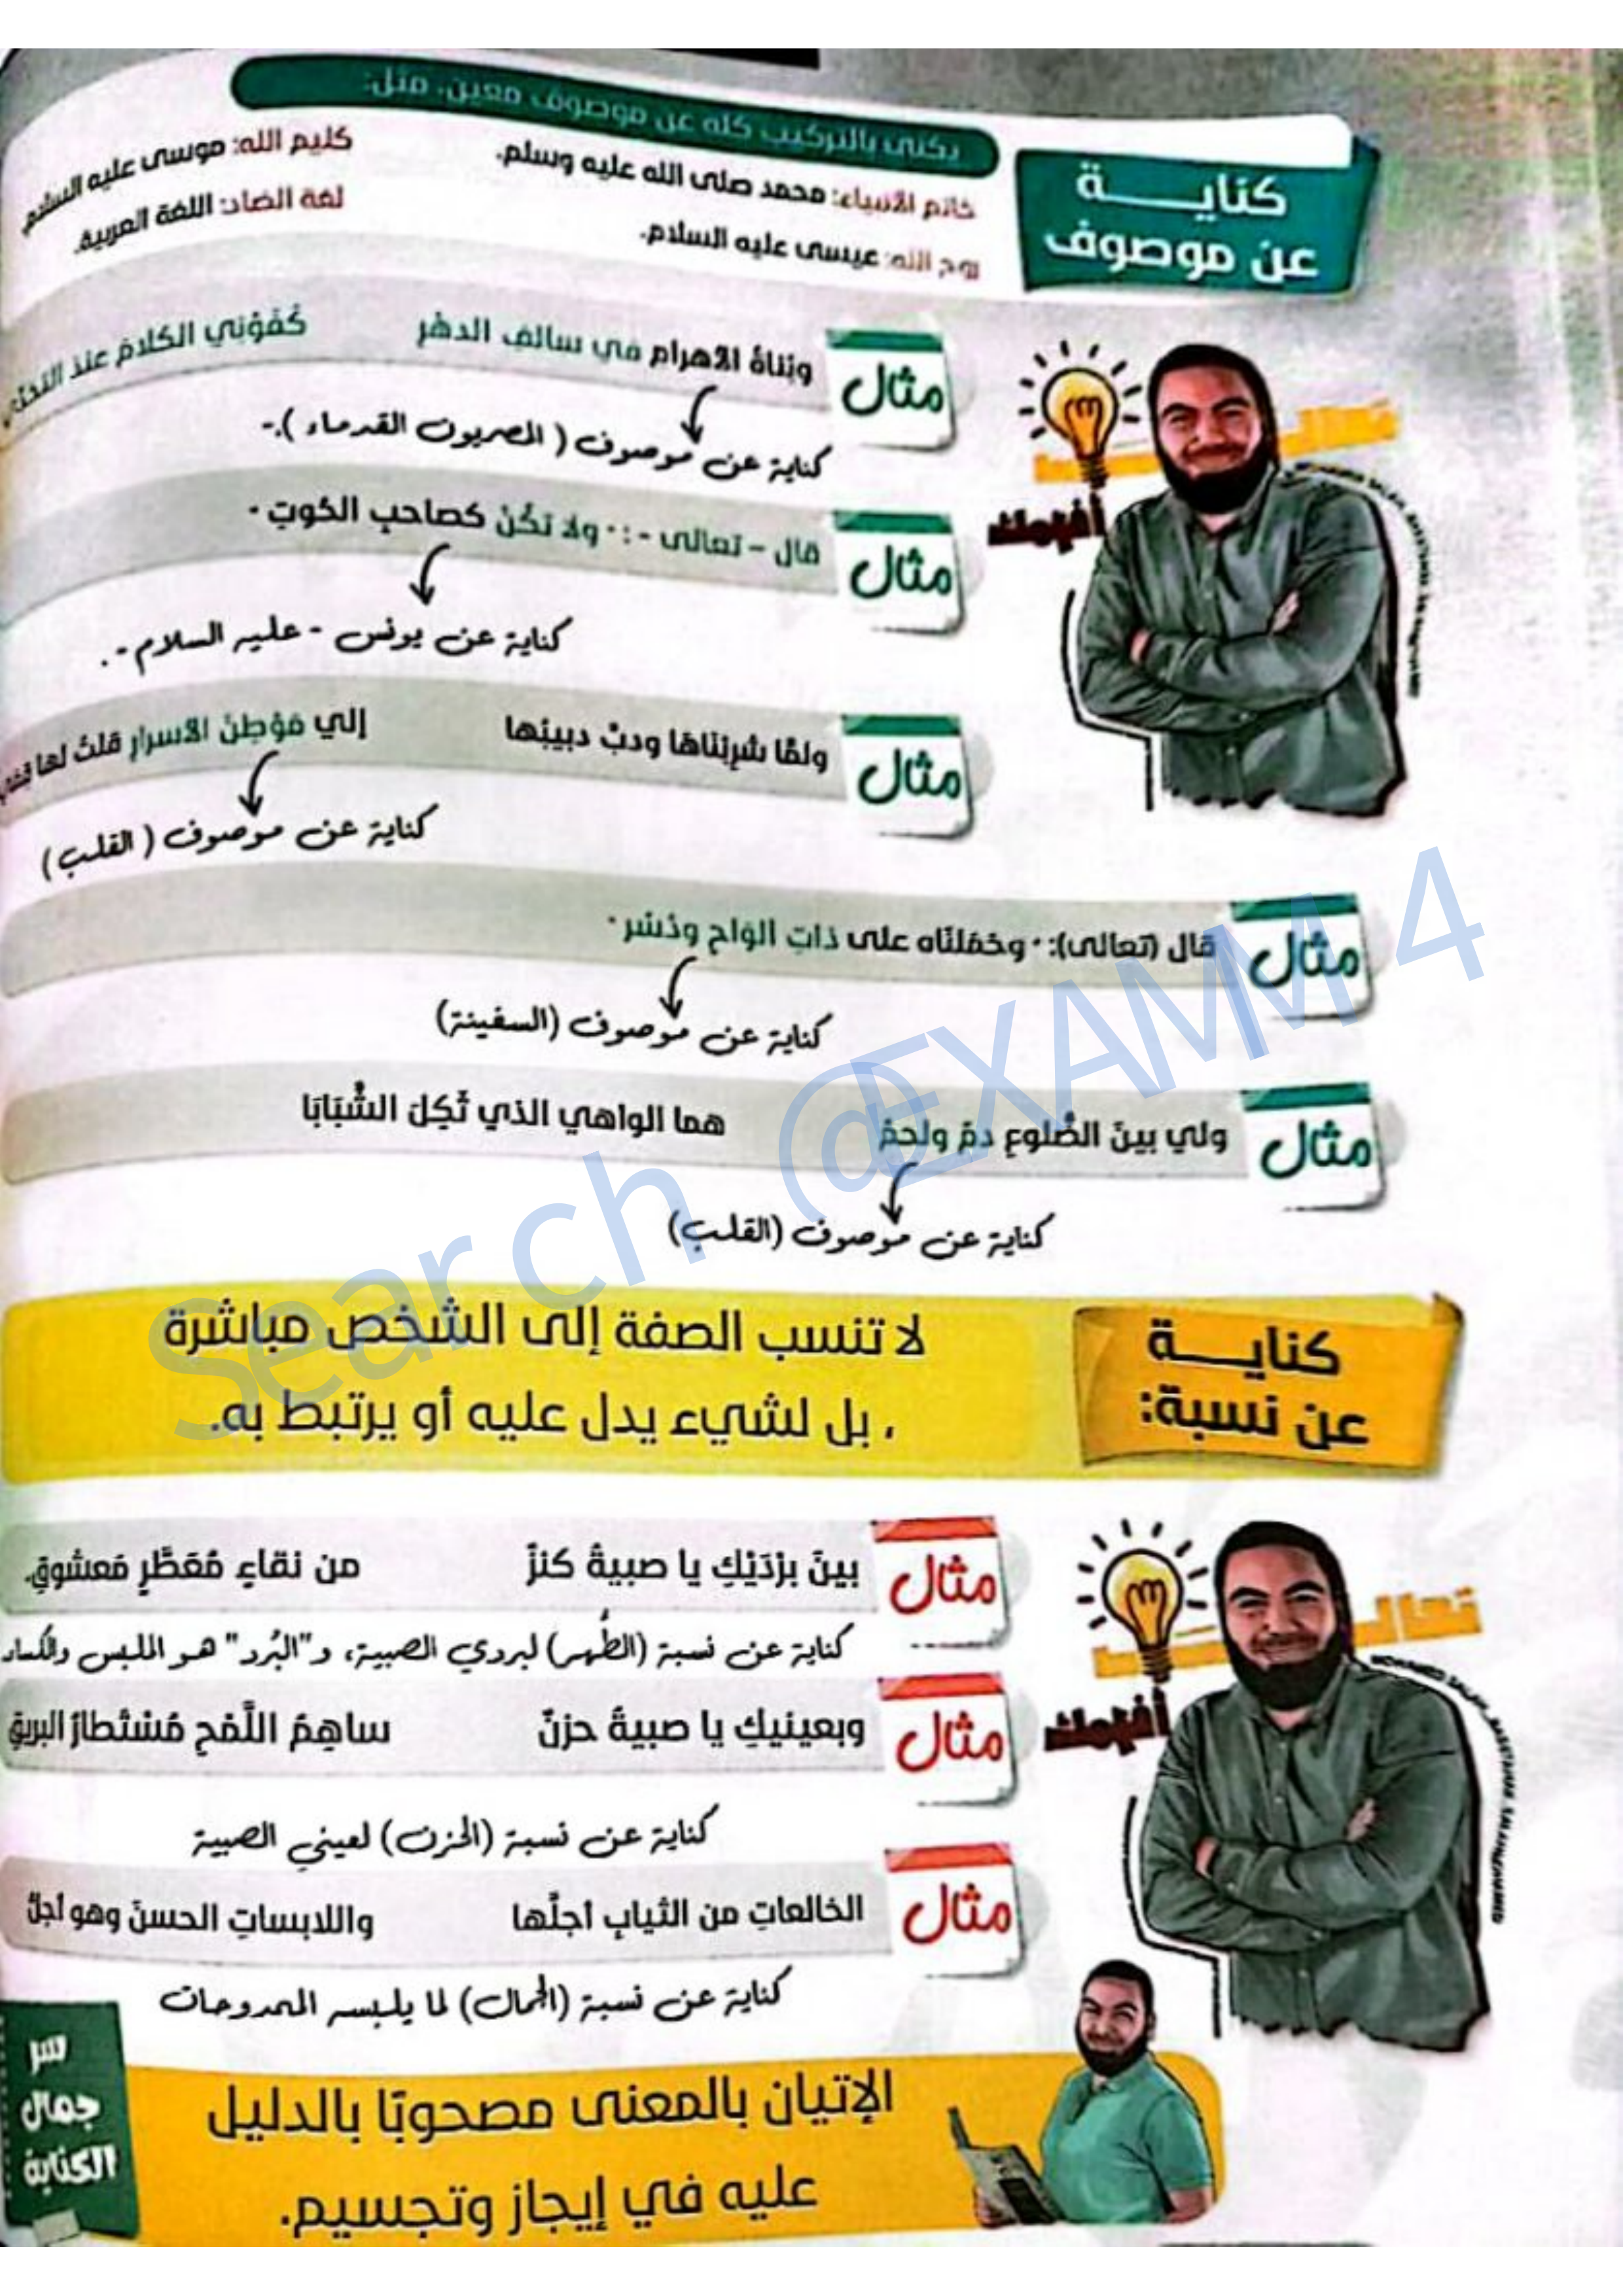 كنايـــة
عن موصوف
يكنى بالتركيب كله عن موصوف معين، مثل:
خاتم الأنبياء: محمد صلى الله عليه وسلم.
كليم الله: موسى عليه السلام.
روح الله: عيسى عليه السلام.
لغة الضاد: اللغة العربية.
مثال
وبُناةُ الأهرامِ في سالفِ الدهرِ كَفَوْنِي الكلامَ عندَ
كناية عن موصوف ( المصريون القدماء ).-
تعالـــــى
أفهمك
مثال
قال – تعالى - : · ولا تكُنْ كصاحبِ الحُوتِ ·
كناية عن يونس - عليه السلام - .
مثال
ولمَّا شربْنَاهَا ودبَّ دبيبُها إلي مَوْطِنِ الأسرارِ قلتُ لها
كناية عن موصوف ( القلب )
مثال
قال (تعالى): · وحَمَلنَاه على ذاتِ ألواحٍ ودُسُر ·
كناية عن موصوف (السفينة)
مثال
ولي بينَ الضُّلوعِ دمٌ ولحمٌ هما الواهي الذي ثَكِلَ الشَّبَابَا
كناية عن موصوف (القلب)
كنايـــة
عن نسبة:
لا تنسب الصفة إلى الشخص مباشرة
، بل لشيء يدل عليه أو يرتبط به.
مثال
بينَ بُرْدَيْكِ يا صبيةُ كنزٌ من نقاءٍ مُعَطَّرٍ مَعشوقِ.
كناية عن نسبة (الطُهر) لبردي الصبية، و"البُرد" هو الملبس والكساء
تعالـــــى
أفهمك
مثال
وبعينيكِ يا صبيةُ حزنٌ ساهِمُ اللَّمْحِ مُسْتَطارُ البريقِ
كناية عن نسبة (الحزن) لعيني الصبية
مثال
الخالعاتِ من الثيابِ أجلَّها واللابساتِ الحسنَ وهو أجلُّ
كناية عن نسبة (الجمال) لما يلبسه الممدوحات
سر
جمال
الكناية
الإتيان بالمعنى مصحوبًا بالدليل
عليه في إيجاز وتجسيم.
Search @EXAMM 4